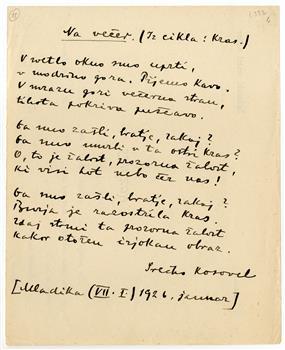 Na večer. (Iz cikla: Kras.)
V svetlo okno smo uprti,
v modrino gora. Pijemo kavo.
V mrazu gori večerna stran,
tihota pokriva puščavo.
Ga smo zašli, bratje, zakaj?
Ga smo umrli v ta ostri Kras?
O, to je žalost, prozorna žalost,
ki visi kot nebo čez nas!
Ga smo zašli, bratje, zakaj?
Burja je razostrila Kras.
Zdaj strmi ta prozorna žalost
kakor otožen izjokan obraz.
Srečko Kosovel
[Mladika (VII. I) 1926, januar]